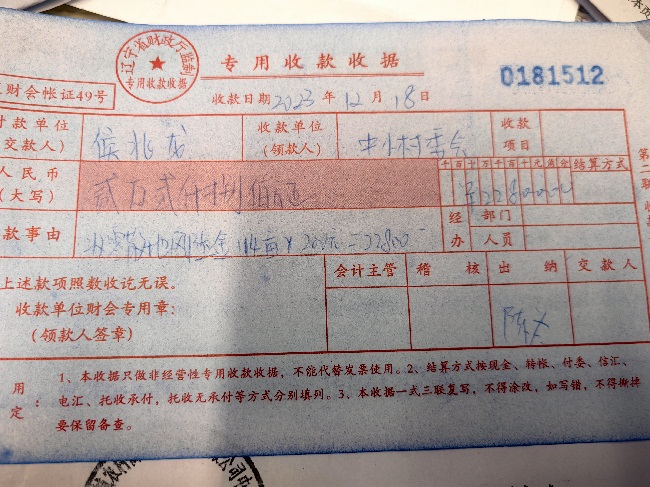 辽宁省财政厅监制
专用收款收据
专用收款收据
0181512
财会帐证49号
收款日期2023年12月18日
付款单位
(交款人)
侯兆龙
收款单位
(领款人)
中小村委会
收款
项目
人民币
(大写)
贰万贰仟捌佰元
千百十万千百十元角分
¥2280000
结算方式
收款事由
114亩×200元=22800
经 部门
办 人员
上述款项照数收讫无误。
收款单位财会专用章:
(领款人签章)
会计主管
稽 核
出 纳
交款人
用
定:
1、本收据只做非经营性专用收款收据,不能代替发票使用。2、结算方式按现金、转帐、付委、信汇、
电汇、托收承付,托收无承付等方式分别填列。3、本收据一式三联复写,不得涂改,如写错,不得撕掉
要保留备查。
第二联